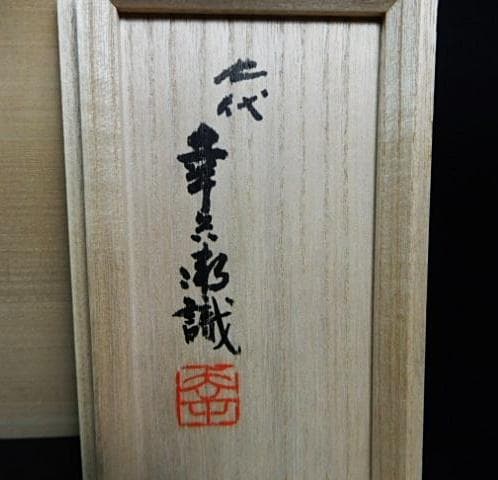 七代
幸兵衛識